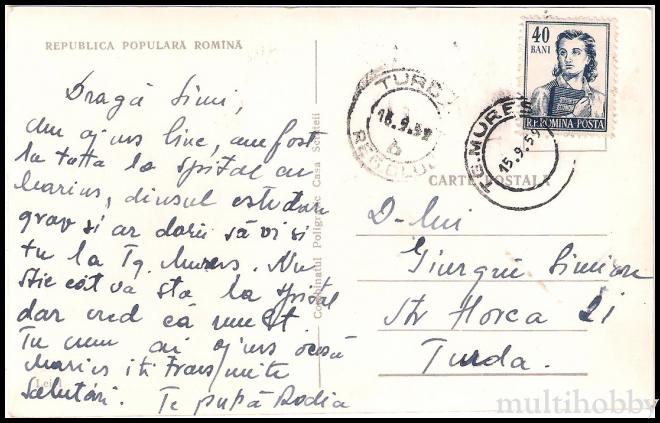 REPUBLICA POPULARĂ ROMÎNĂ
Dragă Simi,
Am ajuns bine, am fost
la tatta la spital cu
Marius, dînsul este
grav și ar dori să vii și
tu la Tg. Mureș. Nu
știe cât va sta la spital
dar cred că mult.
Tu cum ai ajuns acasă
Marius iți transmite
salutări. Te pupă Rodia
Lei 1
Combinatul Poligrafic Casa Scînteii
40
BANI
REP.ROMINA POSTA
TURDA
16.9.59
TG.MUREȘ
15.9.59
CARTE POSTALĂ
D-lui
Giurgiu Simion
Str Horea 21
Turda.
multihobby